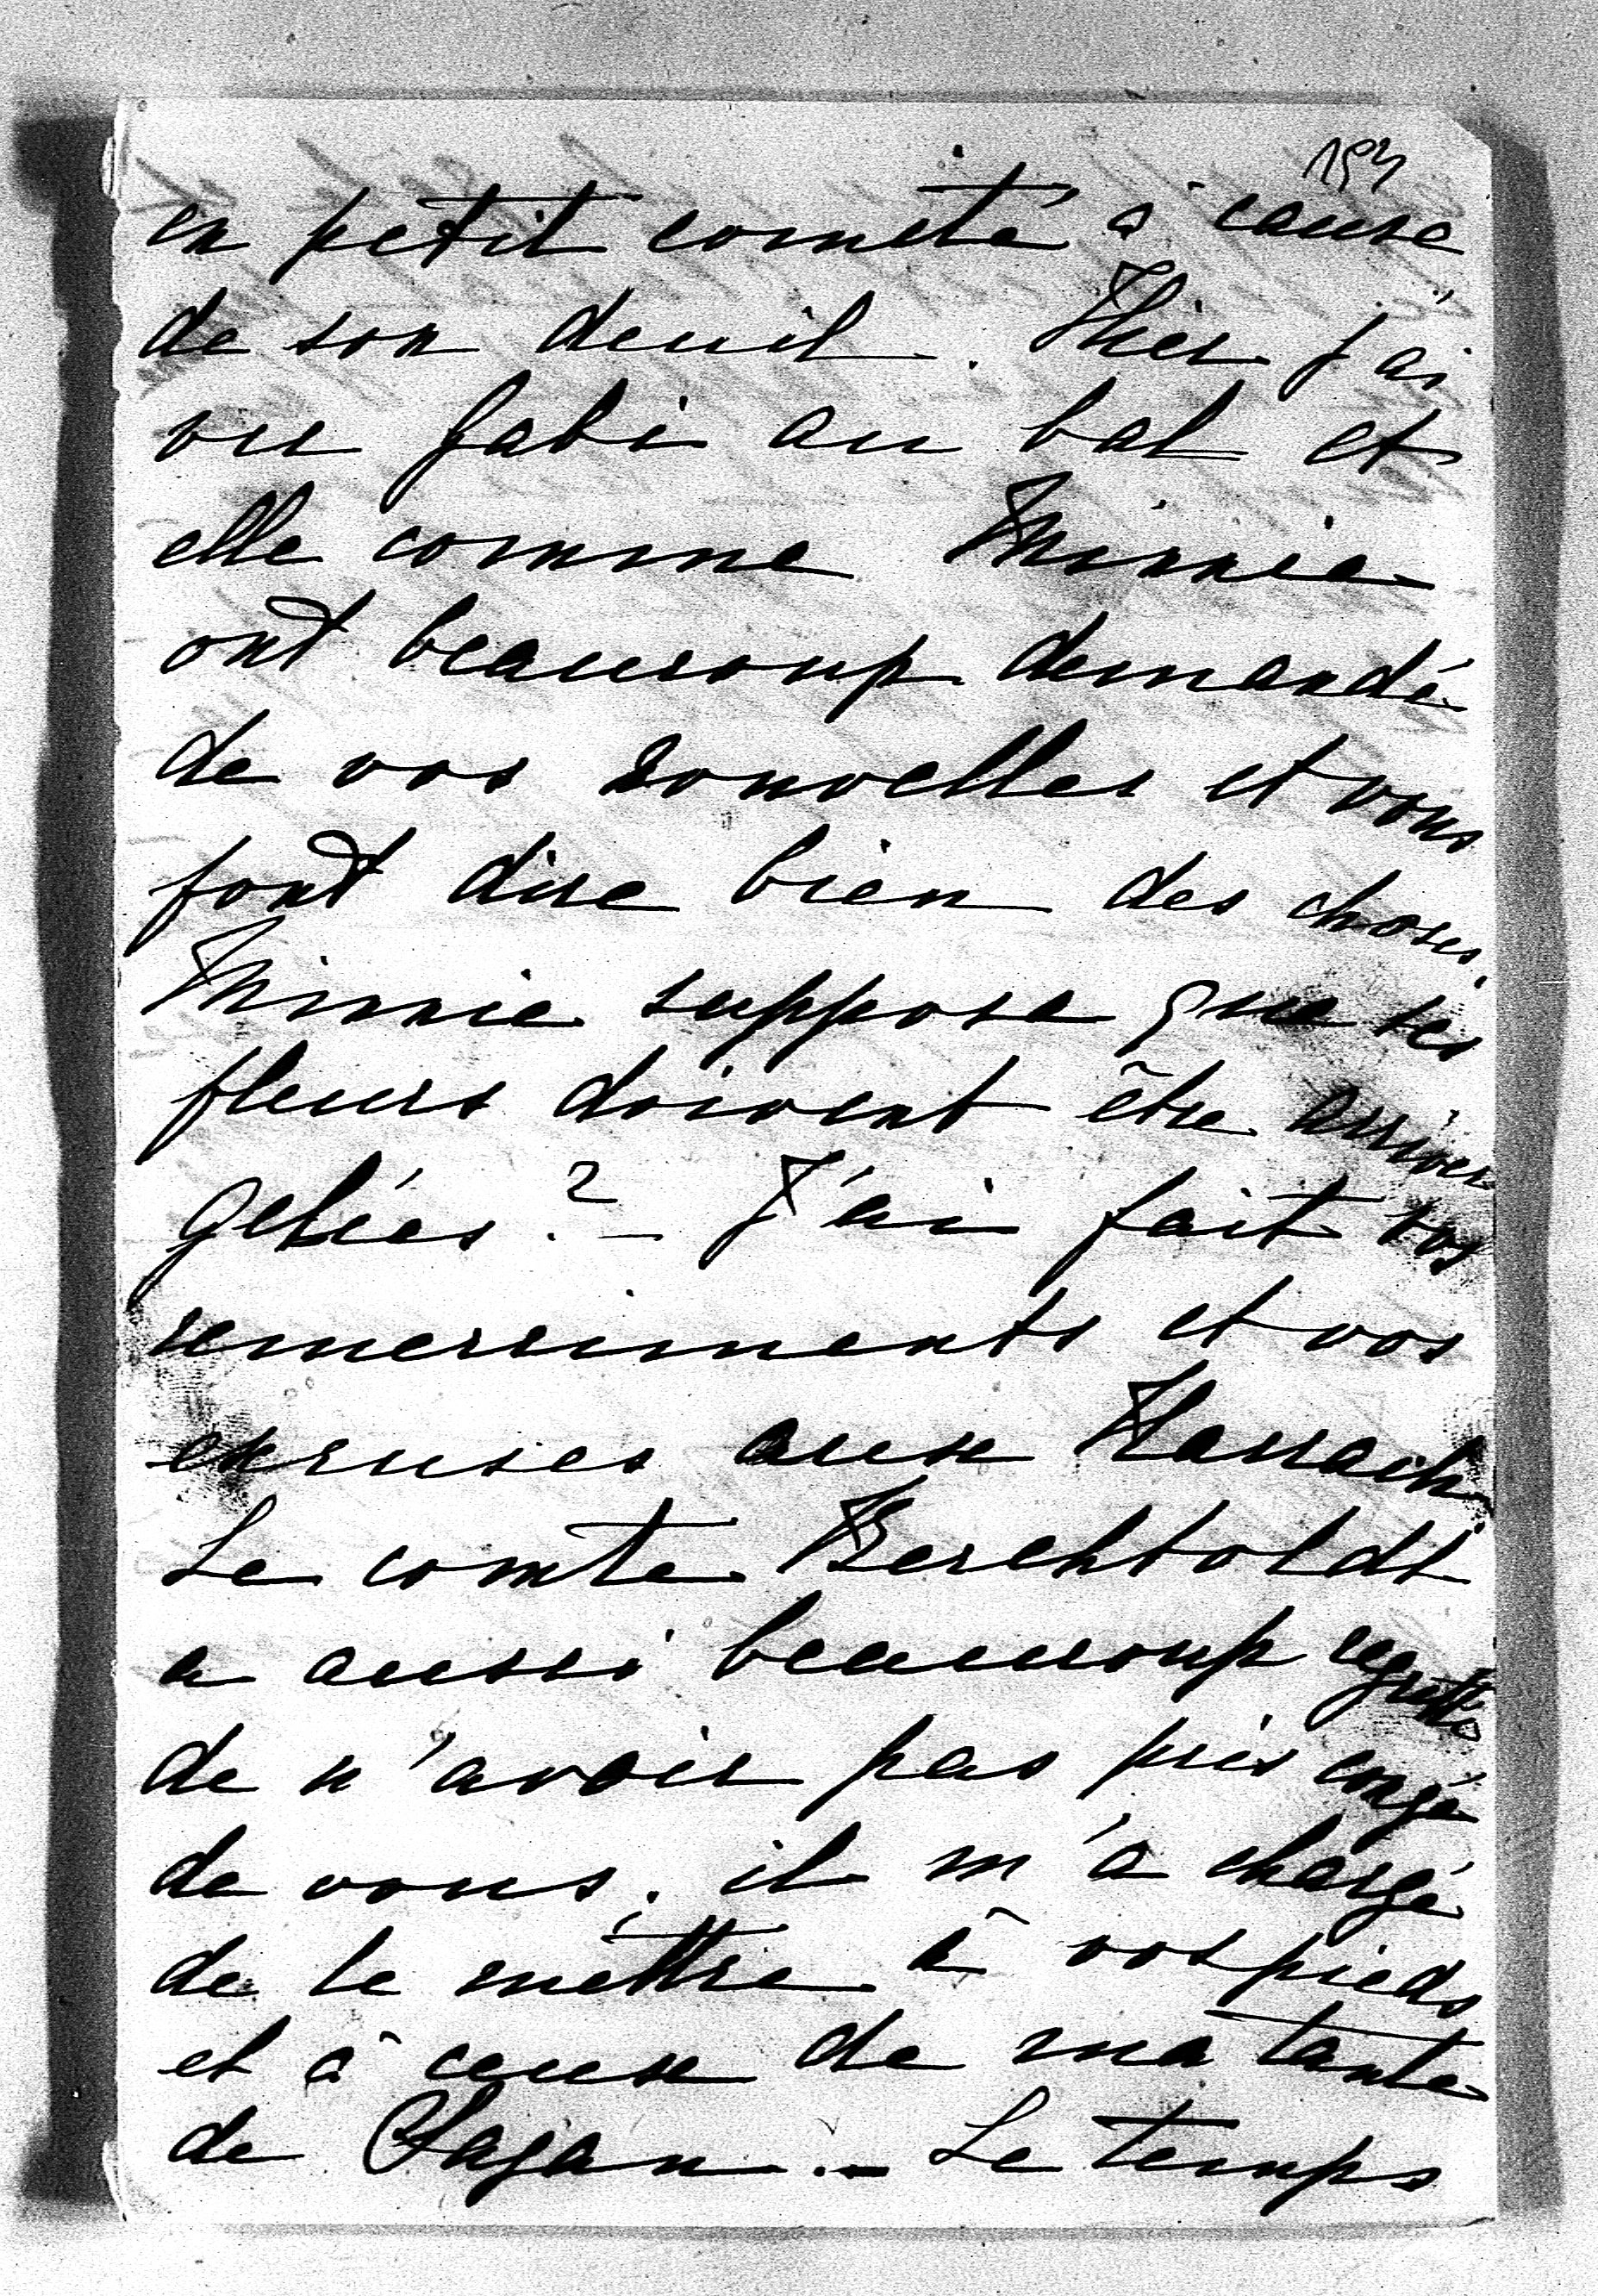 en petit comité à cause
de son deuil. Hier j'ai
vu Gabi au bal et
elle comme Minnie
ont beaucoup demandé
de vos nouvelles et vous
font dire bien des choses.
Minnie suppose que ses
fleurs doivent être arrivées
gelées? – J'ai fait vos
remerciments et vos
excuses aux Harrach.
Le comte Berchtoldt
a aussi beaucoup regretté
de n'avoir pas pris congé
de vous; il m'a chargé
de le mettre à vos pieds
et à ceux de ma tante
de Sagan. – Le temps